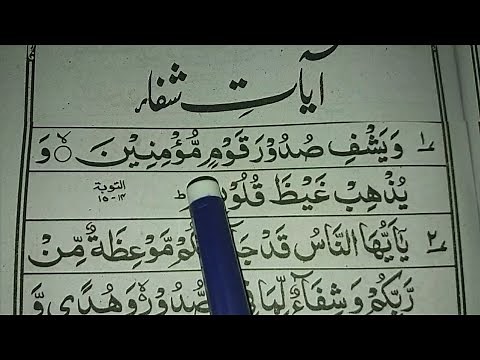 آیاتِ شفاء
۱ وَيَشْفِ صُدُوْرَ قَوْمٍ مُّؤْمِنِيْنَ ۙ وَ
يُذْهِبْ غَيْظَ ط التوبة ۱۴-۱۵
۲ يٰۤاَيُّهَا النَّاسُ قَدْ مَّوْعِظَةٌ مِّنْ
رَّبِّكُمْ وَشِفَآءٌ لِّمَا وَهُدًى وَّ